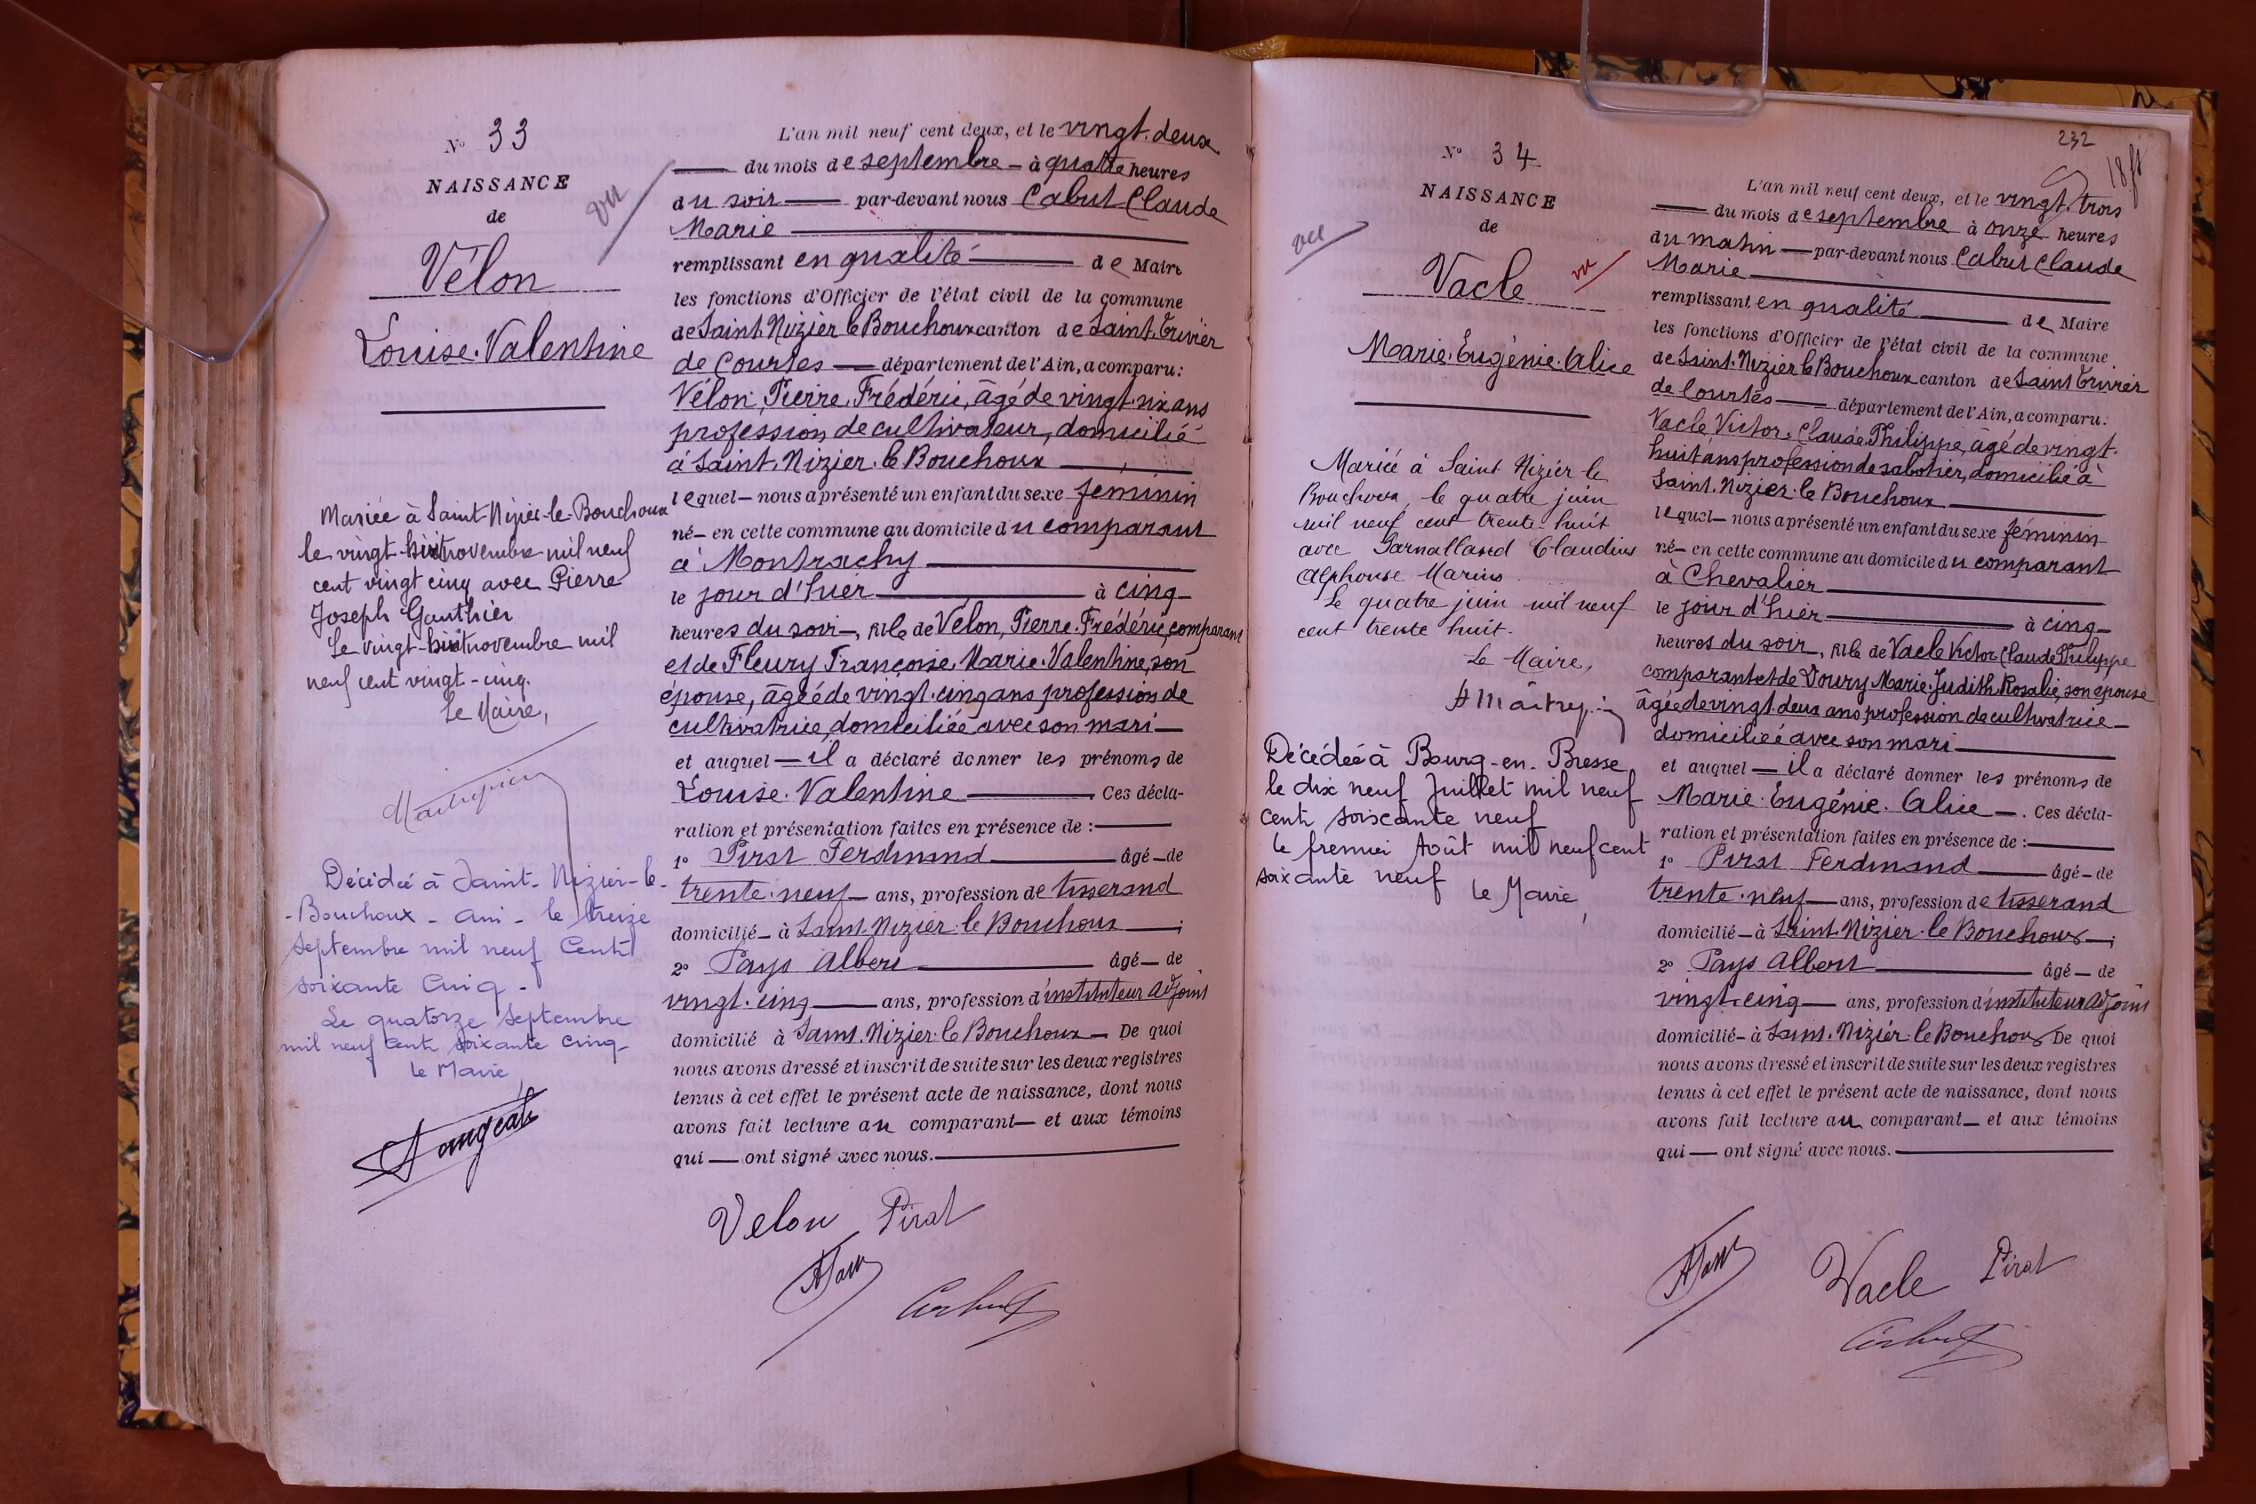 Nº 33
NAISSANCE
de
Vélon
Louise. Valentine
vu
Mariée à Saint-Nizier-le-Bouchoux
le vingt-huit novembre mil neuf
cent vingt cinq avec Pierre
Joseph Gauthier
Le vingt-huit novembre mil
neuf cent vingt-cinq.
Le Maire,
Décédée à Saint-Nizier-le-
-Bouchoux - Ain - le treize
Septembre mil neuf Cent
soixante Cinq -
Le quatorze Septembre
mil neuf Cent soixante cinq-
le Maire
L'an mil neuf cent deux, et le vingt. deux
du mois de septembre - à quatre heures
du soir par-devant nous Cabut Claude
Marie
remplissant en qualité de Maire
les fonctions d'Officier de l'état civil de la commune
de Saint. Nizier le Bouchoux canton de Saint. Trivier
de Courtes département de l'Ain, a comparu:
Vélon, Pierre. Frédéric, âgé de vingt. six ans
profession de cultivateur, domicilié
à Saint. Nizier. le Bouchoux
lequel nous a présenté un enfant du sexe féminin
né en cette commune au domicile du comparant
à Montrachy
le jour d'hier à cinq
heures du soir, fille de Vélon, Pierre. Frédéric, comparant
et de Fleury Françoise, Marie. Valentine, son
épouse, âgée de vingt. cinq ans profession de
cultivatrice, domiciliée avec son mari
et auquel il a déclaré donner les prénoms de
Louise. Valentine. Ces décla-
ration et présentation faites en présence de :
1º Pirat Ferdinand âgé de
trente. neuf ans, profession de tisserand
domicilié à Saint. Nizier. le Bouchoux ;
2º Pays Albert âgé de
vingt. cinq ans, profession d'instituteur adjoint
domicilié à Saint. Nizier. le Bouchoux De quoi
nous avons dressé et inscrit de suite sur les deux registres
tenus à cet effet le présent acte de naissance, dont nous
avons fait lecture au comparant et aux témoins
qui ont signé avec nous.
Velon Pirat
232
Nº 34
NAISSANCE
de
Vacle
Marie. Eugénie. Alice
vu
vu
Mariée à Saint Nizier le
Bouchoux, le quatre juin
mil neuf cent trente-huit
avec Garnalland Claudius
Alphonse Marius.
Le quatre juin mil neuf
cent trente huit.
Le Maire,
Décédée à Bourg-en-Bresse
le dix neuf Juillet mil neuf
cent soixante neuf
le premier Août mil neuf cent
soixante neuf
le Maire,
L'an mil neuf cent deux, et le vingt. trois
du mois de septembre à onze heures
du matin par-devant nous Cabut Claude
Marie
remplissant en qualité de Maire
les fonctions d'Officier de l'état civil de la commune
de Saint. Nizier le Bouchoux canton de Saint Trivier
de Courtes département de l'Ain, a comparu:
Vacle Victor. Claude. Philippe, âgé de vingt.
huit ans profession de sabotier, domicilié à
Saint. Nizier. le Bouchoux
lequel nous a présenté un enfant du sexe féminin
né en cette commune au domicile du comparant
à Chevalier
le jour d'hier à cinq
heures du soir, fille de Vacle Victor Claude Philippe
comparant et de Doury Marie. Judith. Rosalie, son épouse
âgée de vingt deux ans profession de cultivatrice
domiciliée avec son mari
et auquel il a déclaré donner les prénoms de
Marie. Eugénie. Alice. Ces décla-
ration et présentation faites en présence de :
1º Pirat Ferdinand âgé de
trente. neuf ans, profession de tisserand
domicilié à Saint Nizier. le Bouchoux ;
2º Pays Albert âgé de
vingt. cinq ans, profession d'instituteur adjoint
domicilié à Saint. Nizier. le Bouchoux De quoi
nous avons dressé et inscrit de suite sur les deux registres
tenus à cet effet le présent acte de naissance, dont nous
avons fait lecture au comparant et aux témoins
qui ont signé avec nous.
Vacle Pirat